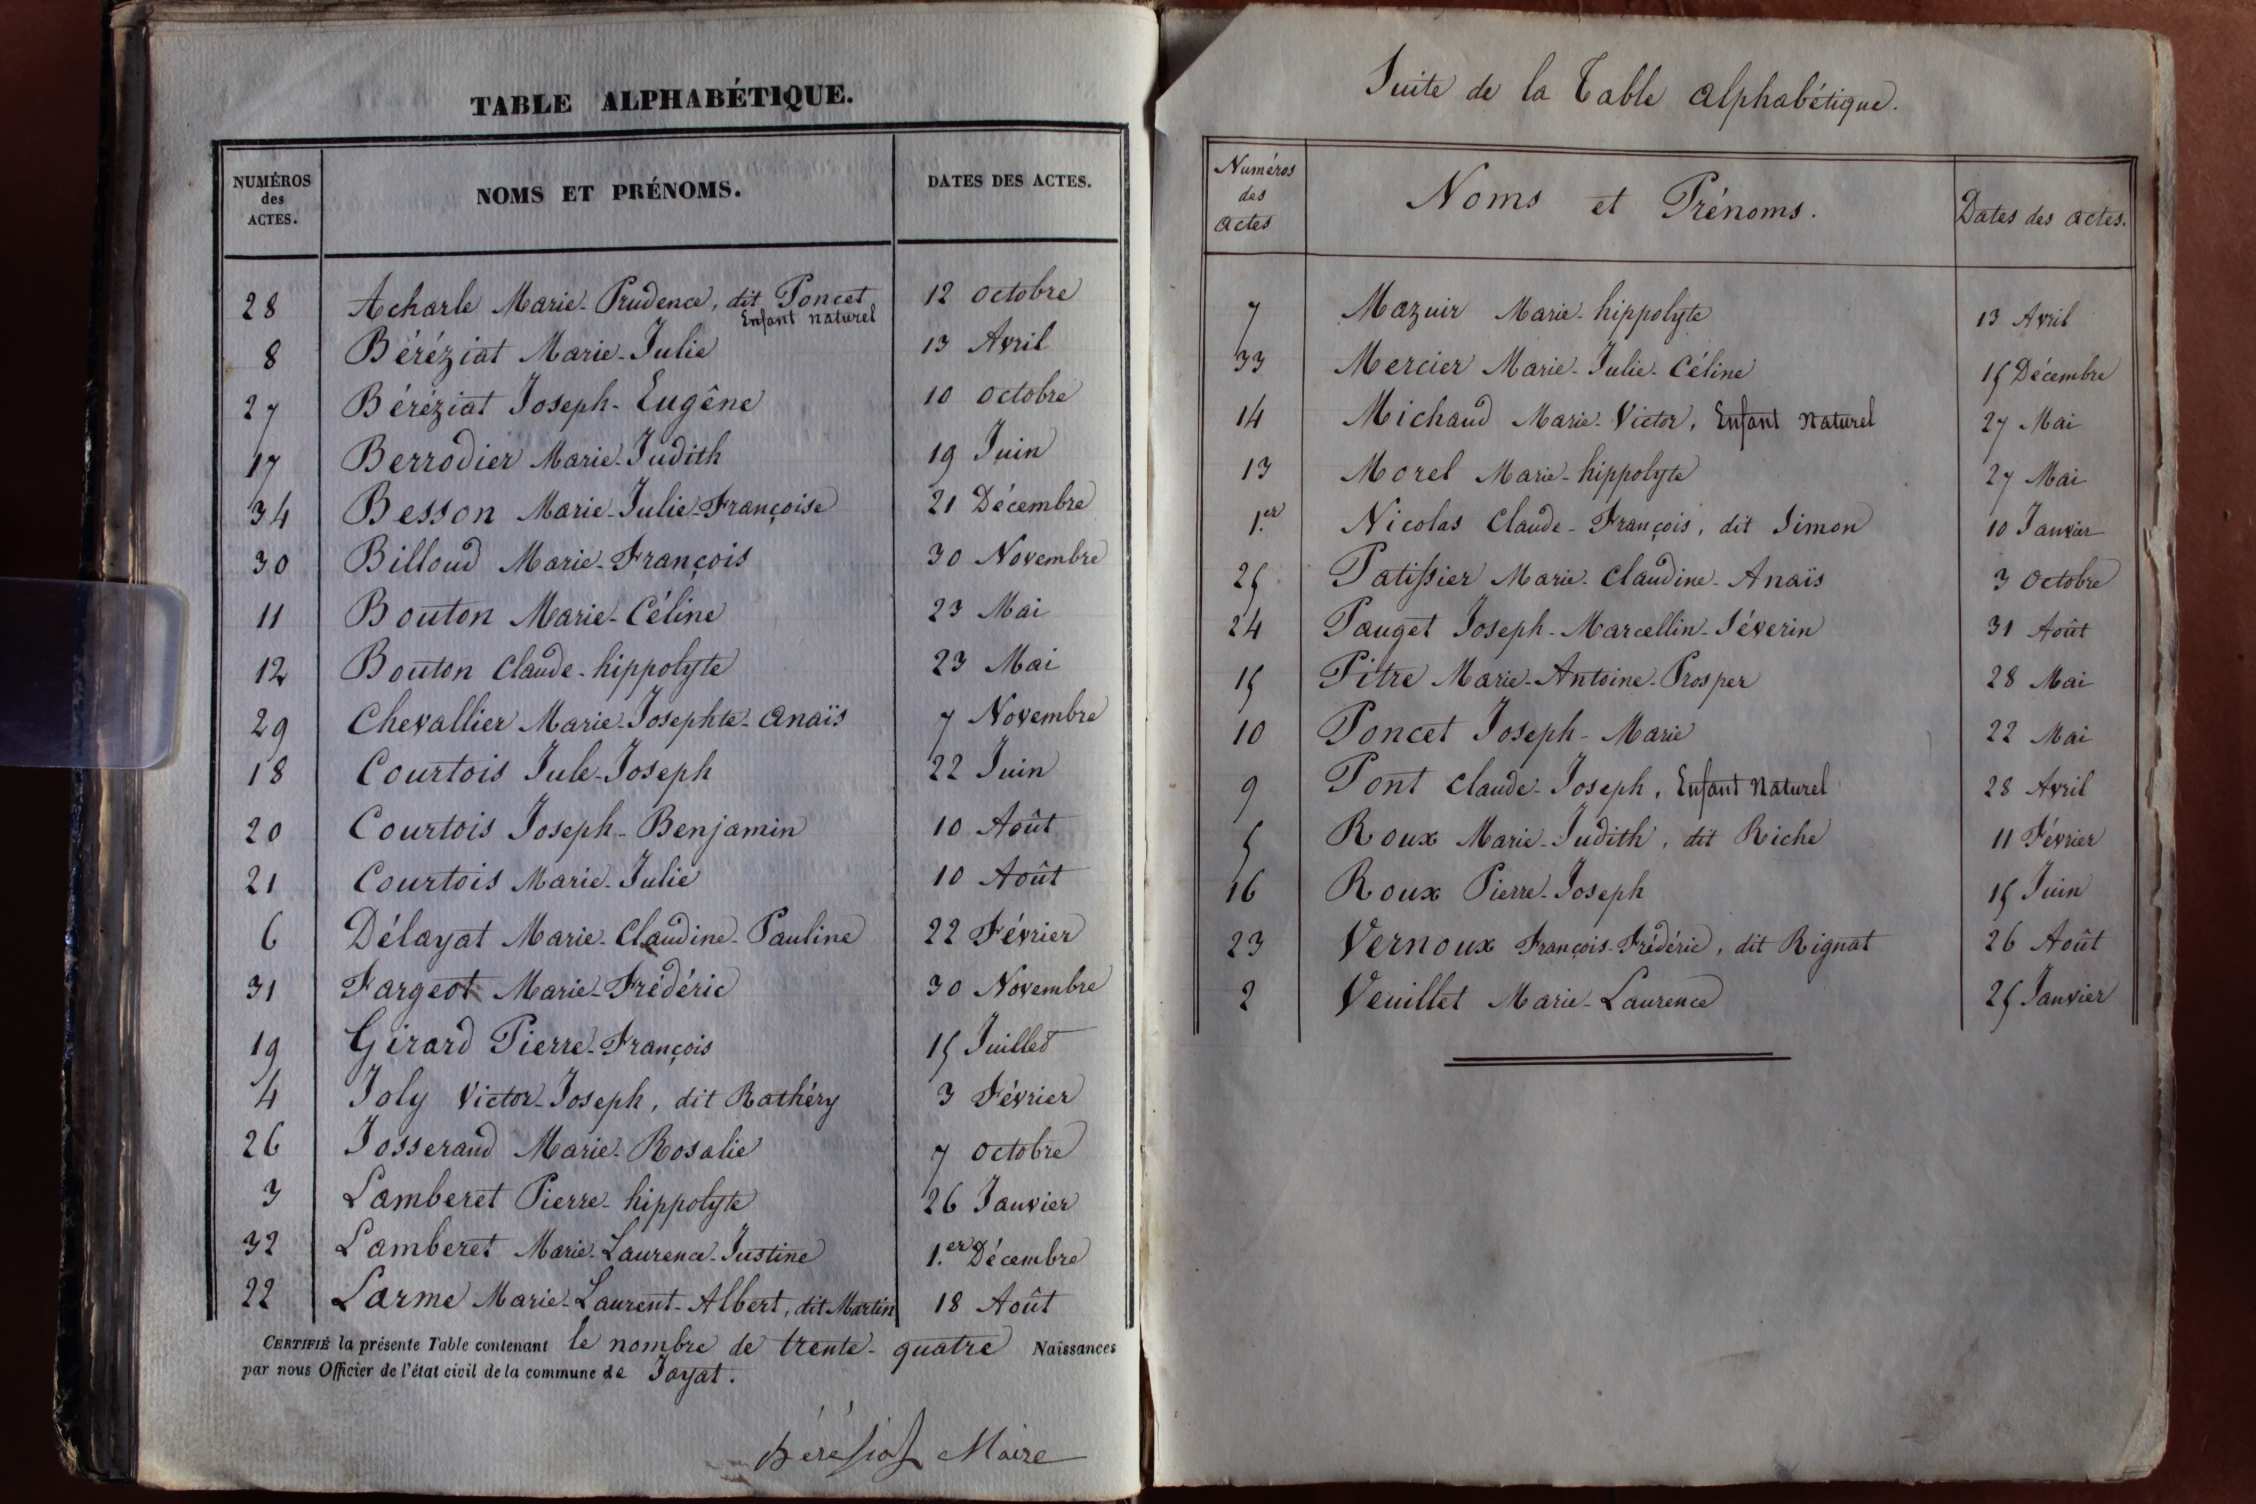 TABLE ALPHABÉTIQUE.
NUMÉROS des ACTES. NOMS ET PRÉNOMS. DATES DES ACTES.
28 Acharle Marie-Prudence, dit Poncet 12 octobre
Enfant naturel
8 Béréziat Marie-Julie 13 Avril
27 Béréziat Joseph-Eugêne 10 octobre
17 Berrodier Marie-Judith 19 Juin
34 Besson Marie-Julie-Françoise 21 Décembre
30 Billoud Marie-François 30 Novembre
11 Bouton Marie-Céline 23 Mai
12 Bouton Claude-hippolyte 23 Mai
29 Chevallier Marie-Josephte-Anaïs 7 Novembre
18 Courtois Jule-Joseph 22 Juin
20 Courtois Joseph-Benjamin 10 Août
21 Courtois Marie-Julie 10 Août
6 Délayat Marie-Claudine-Pauline 22 Février
31 Fargeot Marie-Frédéric 30 Novembre
19 Girard Pierre-François 15 Juillet
4 Joly Victor-Joseph, dit Rathéry 3 Février
26 Josserand Marie-Rosalie 7 octobre
3 Lamberet Pierre-hippolyte 26 Janvier
32 Lamberet Marie-Laurence-Justine 1.er Décembre
22 Larme Marie-Laurent-Albert, dit Martin 18 Août
CERTIFIÉ la présente Table contenant le nombre de trente-quatre Naissances
par nous Officier de l'état civil de la commune de Jayat.
Béréziat Maire
Suite de la Table alphabétique.
Numéros des actes Noms et Prénoms. Dates des actes.
7 Mazuir Marie-hippolyte 13 Avril
33 Mercier Marie-Julie-Céline 15 Décembre
14 Michaud Marie-Victor, Enfant Naturel 27 Mai
13 Morel Marie-hippolyte 27 Mai
1.er Nicolas Claude-François, dit Simon 10 Janvier
25 Patissier Marie-Claudine-Anaïs 3 octobre
24 Pauget Joseph-Marcellin-Séverin 31 Août
15 Pitre Marie-Antoine-Prosper 28 Mai
10 Poncet Joseph-Marie 22 Mai
9 Pont Claude-Joseph, Enfant Naturel 28 Avril
5 Roux Marie-Judith, dit Riche 11 Février
16 Roux Pierre-Joseph 15 Juin
23 Vernoux François-Frédéric, dit Rignat 26 Août
2 Veuillet Marie-Laurence 25 Janvier